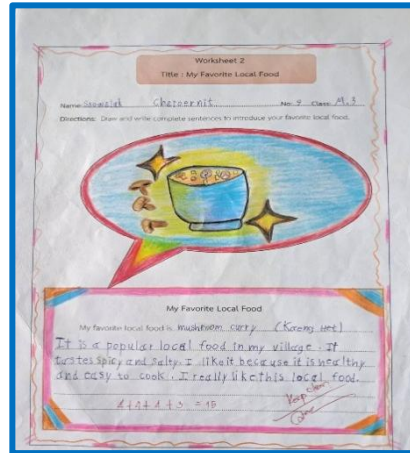 Worksheet 2
Title : My Favorite Local Food
Name: No: 9 Class: M.3
Directions: Draw and write complete sentences to introduce your favorite local food.
My Favorite Local Food
My favorite local food is mushroom curry (Kaeng Het)
It is a popular local food in my village. It
tastes spicy and salty. I like it because it is healthy
and easy to cook. I really like this local food.
4+4+4+3 = 15